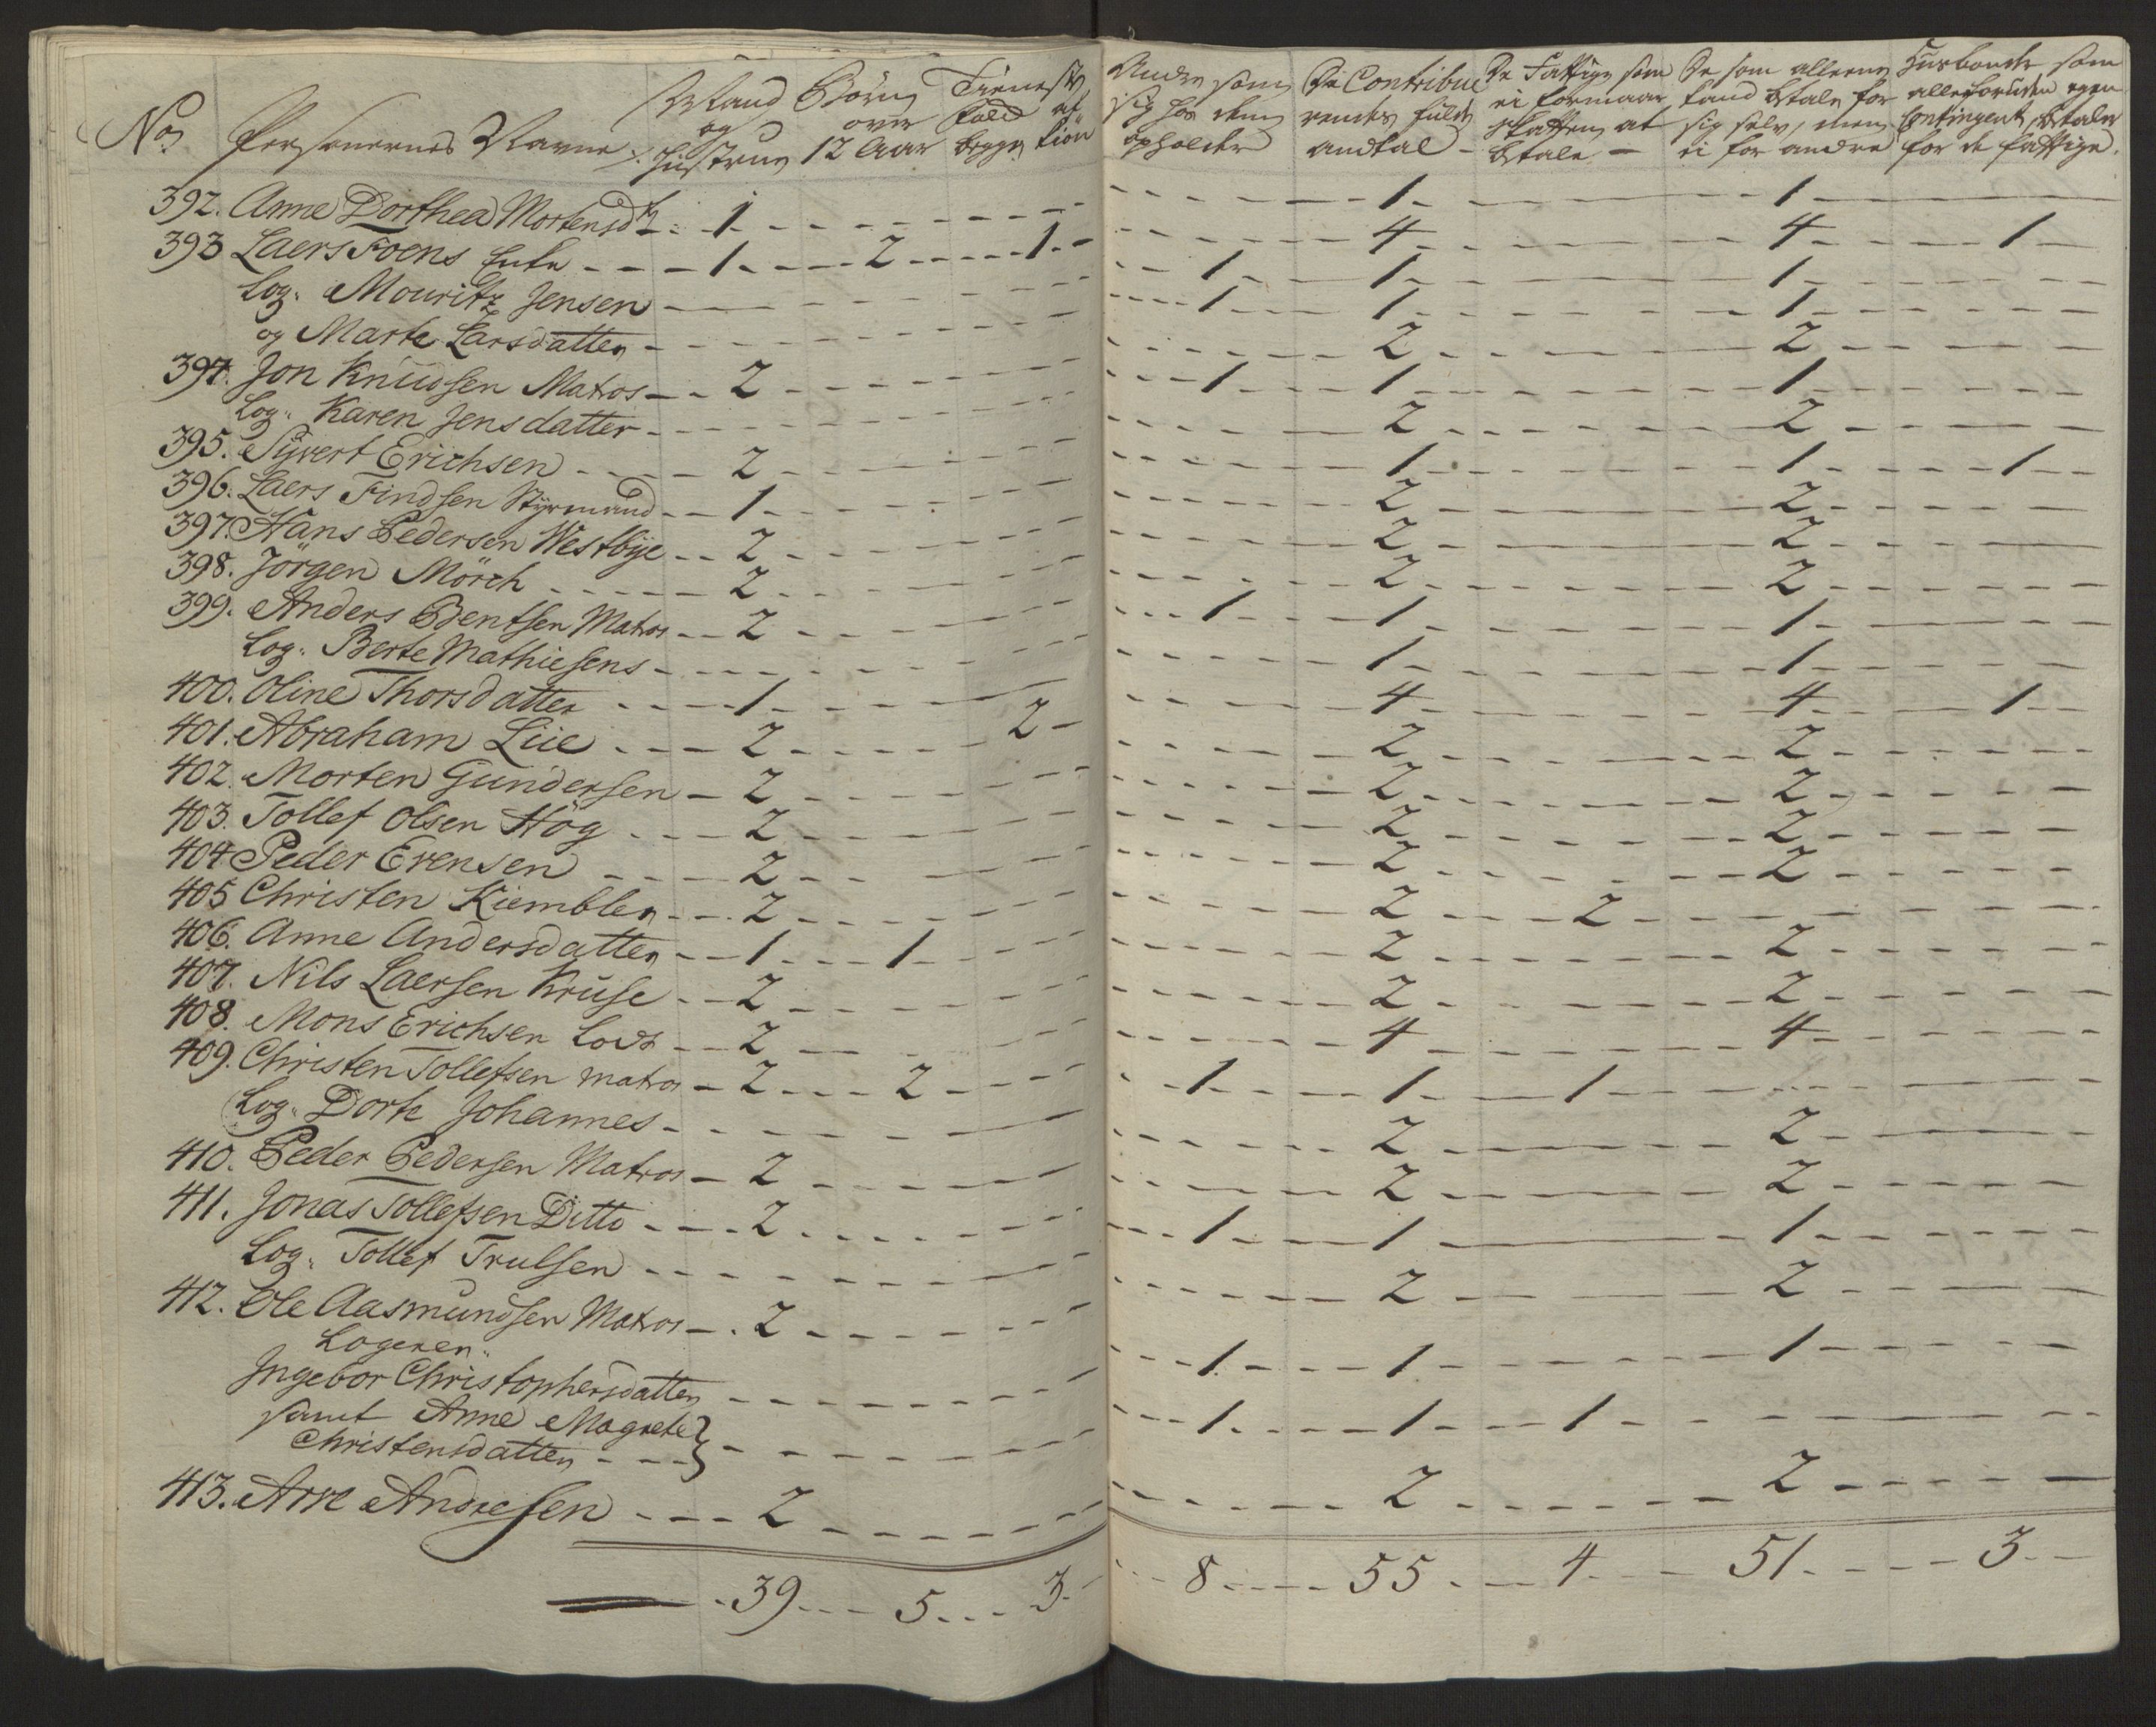 No Personernes Navne Mand og Hustrue Börn over 12 Aar Tieneste folck af begge kiön Andre som sig hos dem opholder De Contribuerendes fulde Andtal - De Fattige som ei formaar Skatten at betale - De som alleene kand betale for sig selv, men ei for andre Husbonde som alle foruden egen Contingent, betaler for de fattige.
392. Anne Dorthea Mortensd - 1 - 1 - 1
393 Laers Foens Enke - 1 - 2 - 1 - 4 - 4 - 1
Log. Mouritz Jensen - 1 - 1 - 1
og Marte Larsdatter - 1 - 1 - 1
394. Jon Knudsen Matros - 2 - 2 - 2
Log. Karen Jensdatter - 1 - 1 - 1
395. Syvert Erichsen - 2 - 2 - 2
396. Laers Findsen Styrmand - 1 - 1 - 1 - 1
397. Hans Pedersen Westbye - 2 - 2 - 2
398. Jörgen Mörch - 2 - 2 - 2
399. Anders Bentsen Matros - 2 - 2 - 2
Log. Berte Mathiesens - 1 - 1 - 1
400. Oline Thorsdatter - 1 - 1 - 1
401. Abraham Lüe - 2 - 2 - 4 - 4 - 1
402. Morten Gundersen - 2 - 2 - 2
403. Tollef Olsen Hög - 2 - 2 - 2
404 Peder Evensen - 2 - 2 - 2
405 Christen Kiembler - 2 - 2 - 2
406. Anne Andersdatter - 1 - 1 - 2 - 2
407. Nils Laersen Kruse - 2 - 2 - 2
408. Mons Erichsen Lods - 2 - 2 - 2
409. Christen Tollefsen matros - 2 - 2 - 4 - 4
Log. Dorte Johannes - 1 - 1 - 1
410. Peder Pedersen Matros - 2 - 2 - 2
411. Jonas Tollefsen Ditto - 2 - 2 - 2
Log. Tollef Trulsen - 1 - 1 - 1
412. Ole Aasmundsen Matros - 2 - 2 - 2
Logerer
Ingebor Christophersdatter - 1 - 1 - 1
samt Anne Magrete
Christensdatter - 1 - 1 - 1
413. Arne Andresen - 2 - 2 - 2
39 - 5 - 3 - 8 - 55 - 4 - 51 - 3